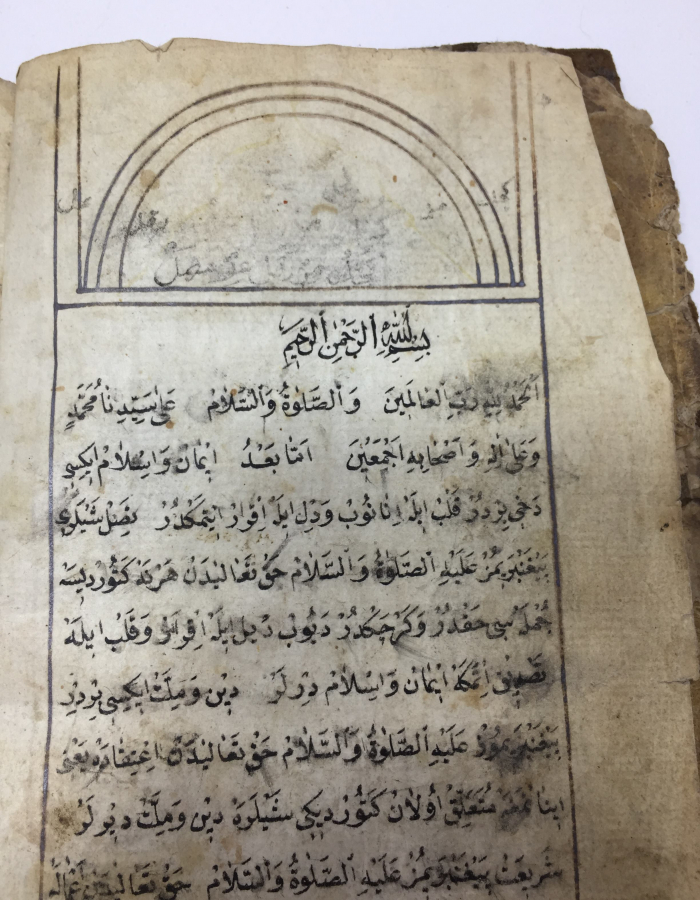 بِسْمِ اللّٰهِ الرَّحْمٰنِ الرَّحِيمِ
اَلْحَمْدُ لِلّٰهِ رَبِّ الْعَالَمِينَ وَالصَّلٰوةُ وَالسَّلَامُ عَلٰى سَيِّدِنَا مُحَمَّدٍ
وَعَلٰى اٰلِهِ وَاَصْحَابِهِ اَجْمَعِينَ اَمَّا بَعْدُ اِيمَان وَاِسْلَام اِيكِيسِى
دَخِى بِرْدُرْ قَلْب اِيلَه اِنَانُوب وَدِل اِيلَه اِقْرَار اِيتْمَكْدُرْ
پَيْغَمْبَرِيمُزْ عَلَيْهِ الصَّلٰوةُ وَالسَّلَامْ حَقْ تَعَالٰيدَنْ هَرْ نَه كَتُورْدِيسَه
جُمْلَسِى حَقْدُرْ وَكَرْچَكْدُرْ دِيُوبْ دِيل اِيلَه اِقْرَار وَقَلْب اِيلَه
تَصْدِيق اِتْمَكَه اِيمَان وَاِسْلَام دِرْلَرْ دِين وَمِلَّتْ اِيكِيسِى بِرْدِرْ
پَيْغَمْبَرِيمُوزْ عَلَيْهِ الصَّلٰوةُ وَالسَّلَامْ حَقْ تَعَالٰيدَنْ اِعْتِقَادَه يَعْنِى
مُتَعَلِّقْ اُولَانْ كَتُورْدِيكِى شَيْلَرَه دِين وَمِلَّتْ دِيرْلَرْ
شَرِيعَتْ پَيْغَمْبَرِيمُزْ عَلَيْهِ الصَّلٰوةُ وَالسَّلَامْ حَقْ تَعَالٰيدَنْ